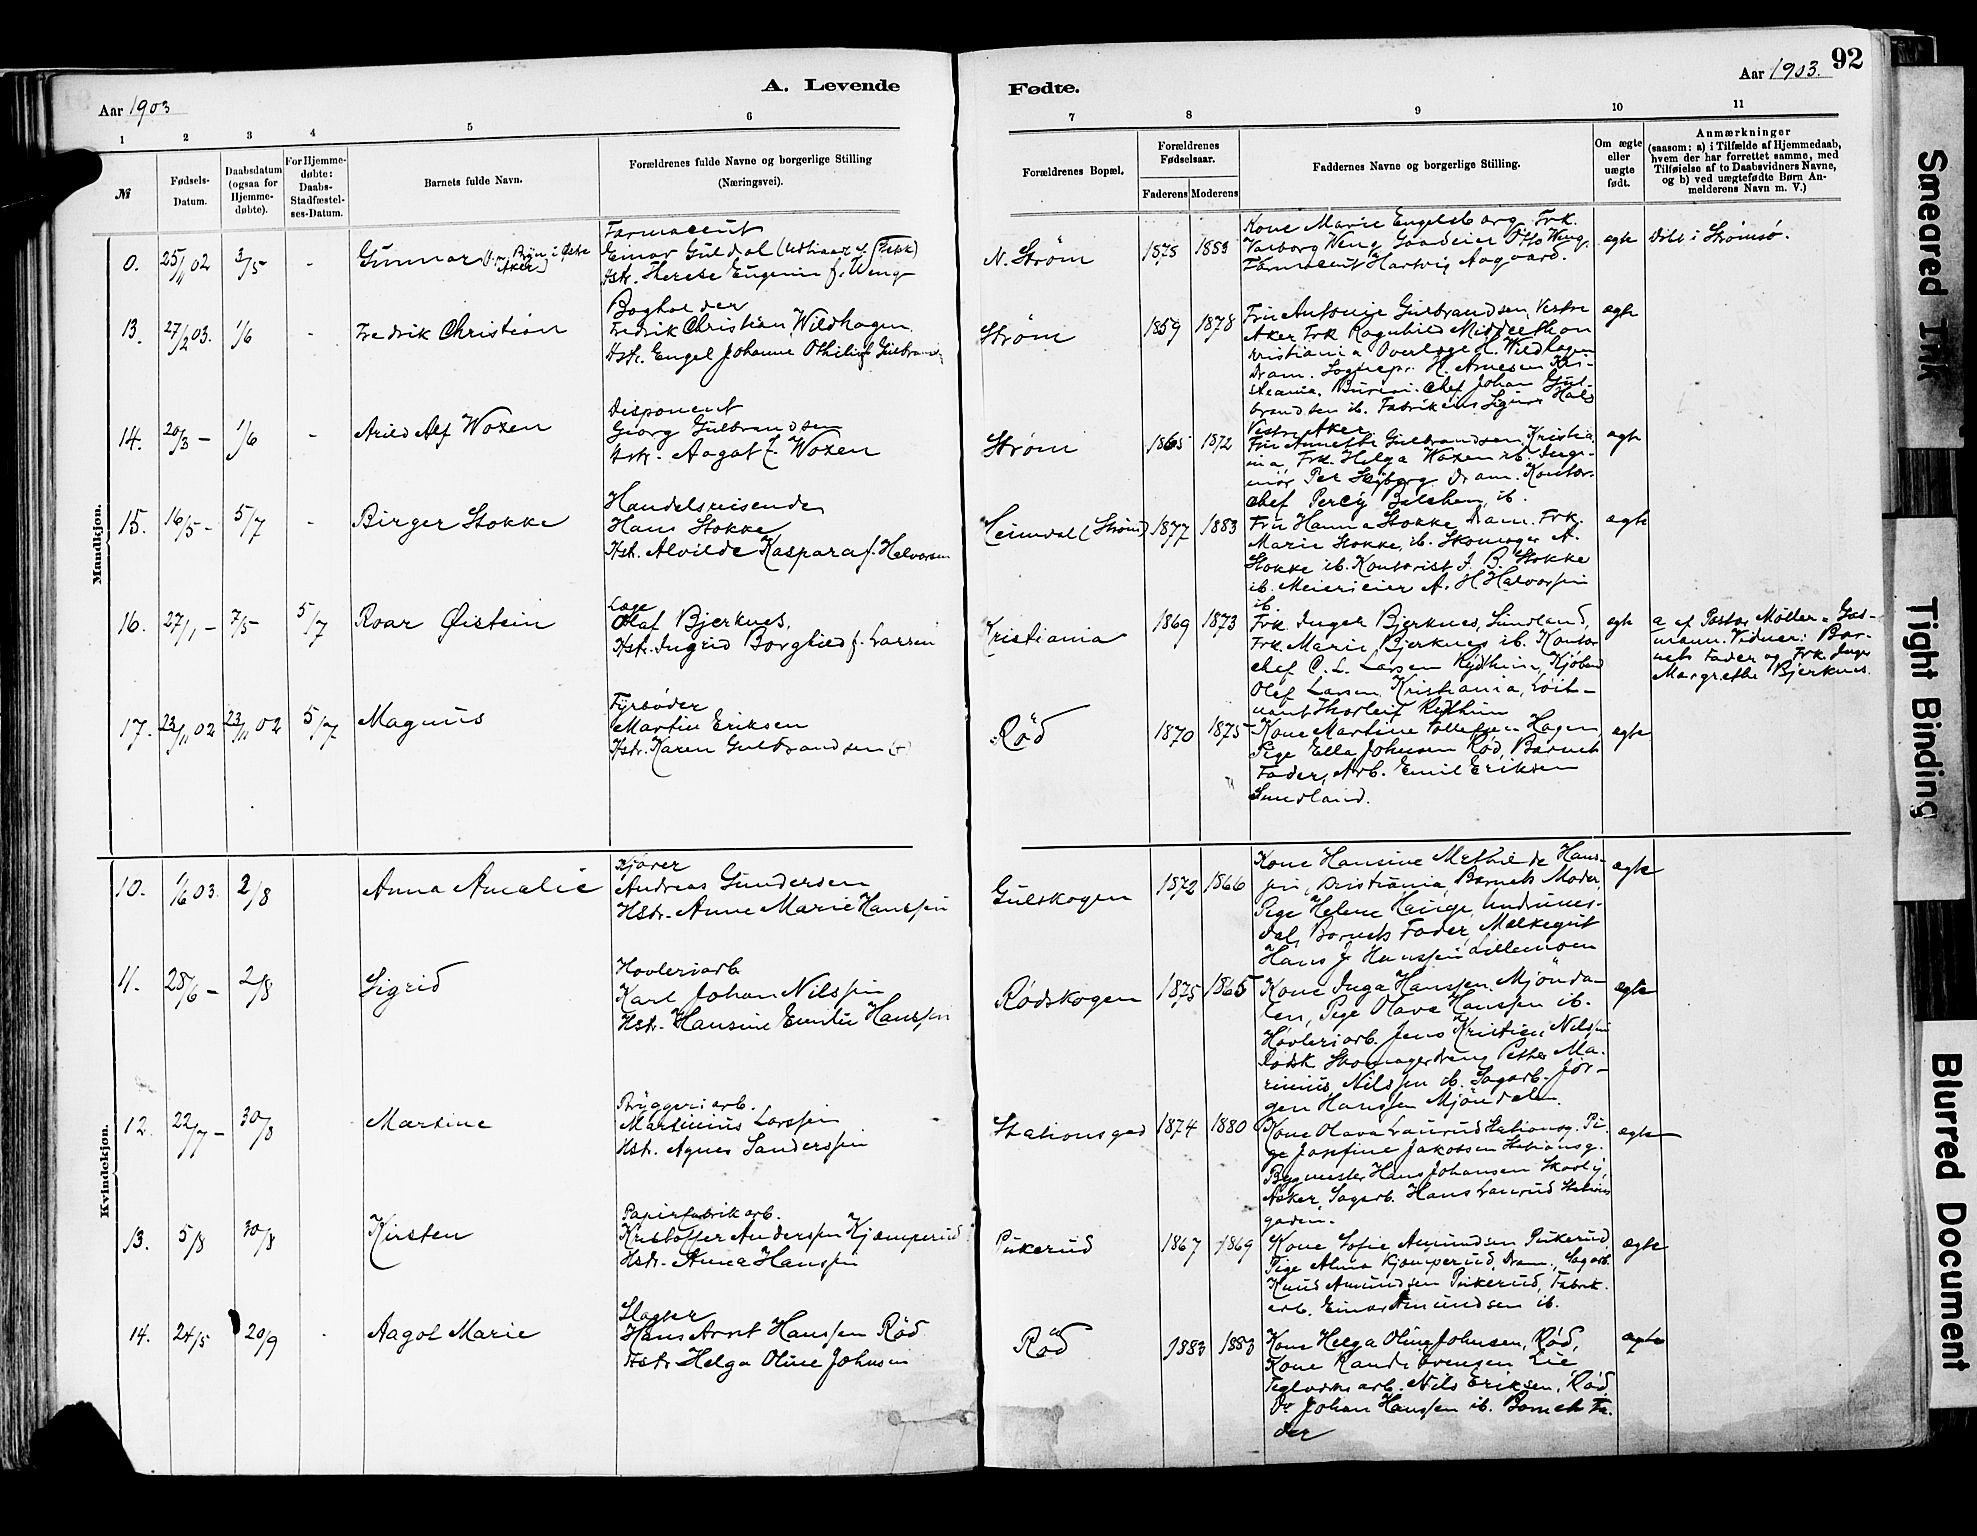 92
A. Levende
Fødte.
Aar 1903
Aar 1903.
1 2 3 4 5 6
7 8 9 10 11
№
Fødsels-
Datum.
Daabsdatum
(ogsaa for
Hjemme-
døbte).
For Hjemme-
døbte:
Daabs-
Stadfæstel-
ses-Datum.
Barnets fulde Navn.
Forældrenes fulde Navne og borgerlige Stilling
(Næringsvei).
Forældrenes Bopæl.
Forældrenes
Fødselsaar.
Faderens Moderens
Faddernes Navne og borgerlige Stilling.
Om ægte
eller
uægte
født.
Anmærkninger
(saasom: a) i Tilfælde af Hjemmedaab,
hvem der har forrettet samme, med
Tilføielse af to Daabsvidners Navne,
og b) ved uægtefødte Børn An-
melderens Navn m. V.)
Mandkjøn.
0. 25/11 02 3/5 - Gunnar
Farmaceut
Einar Guldal
Hstr. Therese Eugenie f. Weng
N. Strøm 1875 1853
Kone Marie Engelsborg, Frk.
Valborg Weng, Gaardeier Otto Weng,
Farmaceut Hartvig Aagaard.
ægte
Døbt i Strømsø.
13. 27/2 03. 1/6 - Fredrik Christian
Bogholder
Fredrik Christian Wildhagen
Hstr. Engel Johanne Othilie f. Gulbrands
Strøm 1859 1878
Fru Antonie Gulbrandsen, Vestre
Aker, Frk. Ragnhild Middelthon
Kristiania Overlæge H. Wildhagen
Dram. Sognepr. H. Arnesen Kri-
stiania, Bureau-chef Johan Gul-
brandsen ib. Fabrikeier Sigurd
Vestre Aker
ægte
14. 20/3 - 1/6 - Arild Alf Woxen
Disponent
Georg Gulbrandsen
Hstr. Aagot f. Woxen
Strøm 1865 1872
Fru Annette Gulbrandsen, Kristia
nia, Frk. Helga Woxen ib. Inge-
niør Per Skyberg Dram. Kontor-
chef Percy ib.
ægte
15. 16/5 - 5/7 - Birger Stokke
Handelsreisende
Hans Stokke
Hstr. Alvilde Kaspara f. Halvorsen
Heimdal (Strøm) 1877 1883
Fru Hanna Stokke, Dram. Frk.
Marie Stokke, ib. Skomager A.
Stokke ib. Kontorist J. B. Stokke
ib. Meierieier A. H. Halvorsen
ib.
ægte
16. 27/1 - 7/5 5/7 Roar Øistein
Læge
Olaf Bjerknes,
Hstr. Ingrid Borghild f. Larsen
Kristiania 1869 1873
Frk. Inger Bjerknes, Sundland,
Frk. Marie Bjerknes ib. Kontor
chef C. L. Larsen
Olef Larsen, Kristiania, Løit-
nant Thorleif
ægte
a. af Pastor Møller-Gas-
mann. Vidner: Bar-
nets Fader og Frk. Inger
Margrethe Bjerknes.
17. 23/11 02 23/11 02 5/7 Magnus
Fyrbøder
Martin Eriksen
Hstr. Karen Gulbrandsen (+)
Rød 1870 1875
Kone Martine Tollefsen Hagen,
Pige Ella Johnsen Rød, Barnets
Fader, Arb. Emil Eriksen
Sundland.
ægte
Kvindekjøn.
10. 1/6 03. 2/8 Anna Amalie
Kjører
Andreas Gundersen
Hstr. Anne Marie Hanssen
Gulskogen 1872 1866
Kone Hansine Mathilde Hans-
sen, Kristiania, Barnets Moder,
Pige Helene Hauge,
dal, Barnets Fader, Melkegut
Hans J. Hanssen Lillemoen
ægte
11. 28/6 - 2/8 Sigrid
Høvleriarb.
Karl Johan Nilssen
Hstr. Hansine Emilie Hanssen
Rødskogen 1875 1865
Kone Inga Hanssen, Mjønda-
len, Pige Olava Hanssen ib.
Høvleriarb. Jens Kristian Nilssen
Rødsk. Skomagerdreng Petter Ma-
rinius Nilssen ib. Sagarb. Jør-
gen Hanssen Mjøndalen.
ægte
12. 22/7 - 30/8 Marsine
Bryggeriarb.
Martinius Larssen
Hstr. Agnes Sanderssen
Stationsgad 1874 1880
Kone Olava Laurud Stationsg. Pi-
ge Josefine Jakobsen Stationsg.
Bygmester Hans Johansen
Asker, Sagarb. Hans Laurud Stations
gaden.
ægte
13. 5/8 30/8 Kirsten
Papirfabrikarb.
Kristoffer Anderssen Kjæmperud
Hstr. Anna Hanssen
Pukerud 1867 1869
Kone Sofie Amundsen Pukerud,
Pige Alma Kjæmperud, Dram., Sagarb.
Knud Amundsen Pukerud, Fabrik-
arb. Einar Amundsen ib.
ægte
14. 24/5 20/9 - Aagot Marie
Slagter
Hans Arnt Hanssen Rød
Hstr. Helga Oline Johnsen
Rød 1883 1883
Kone Helga Oline Johnsen, Rød,
Kone Randi Svensen Lie
Teglverksarb. Nils Eriksen, Rød
Do Johan Hanssen ib. Barnets Fa-
der
ægte
Smeared Ink
Tight Binding
Blurred Document